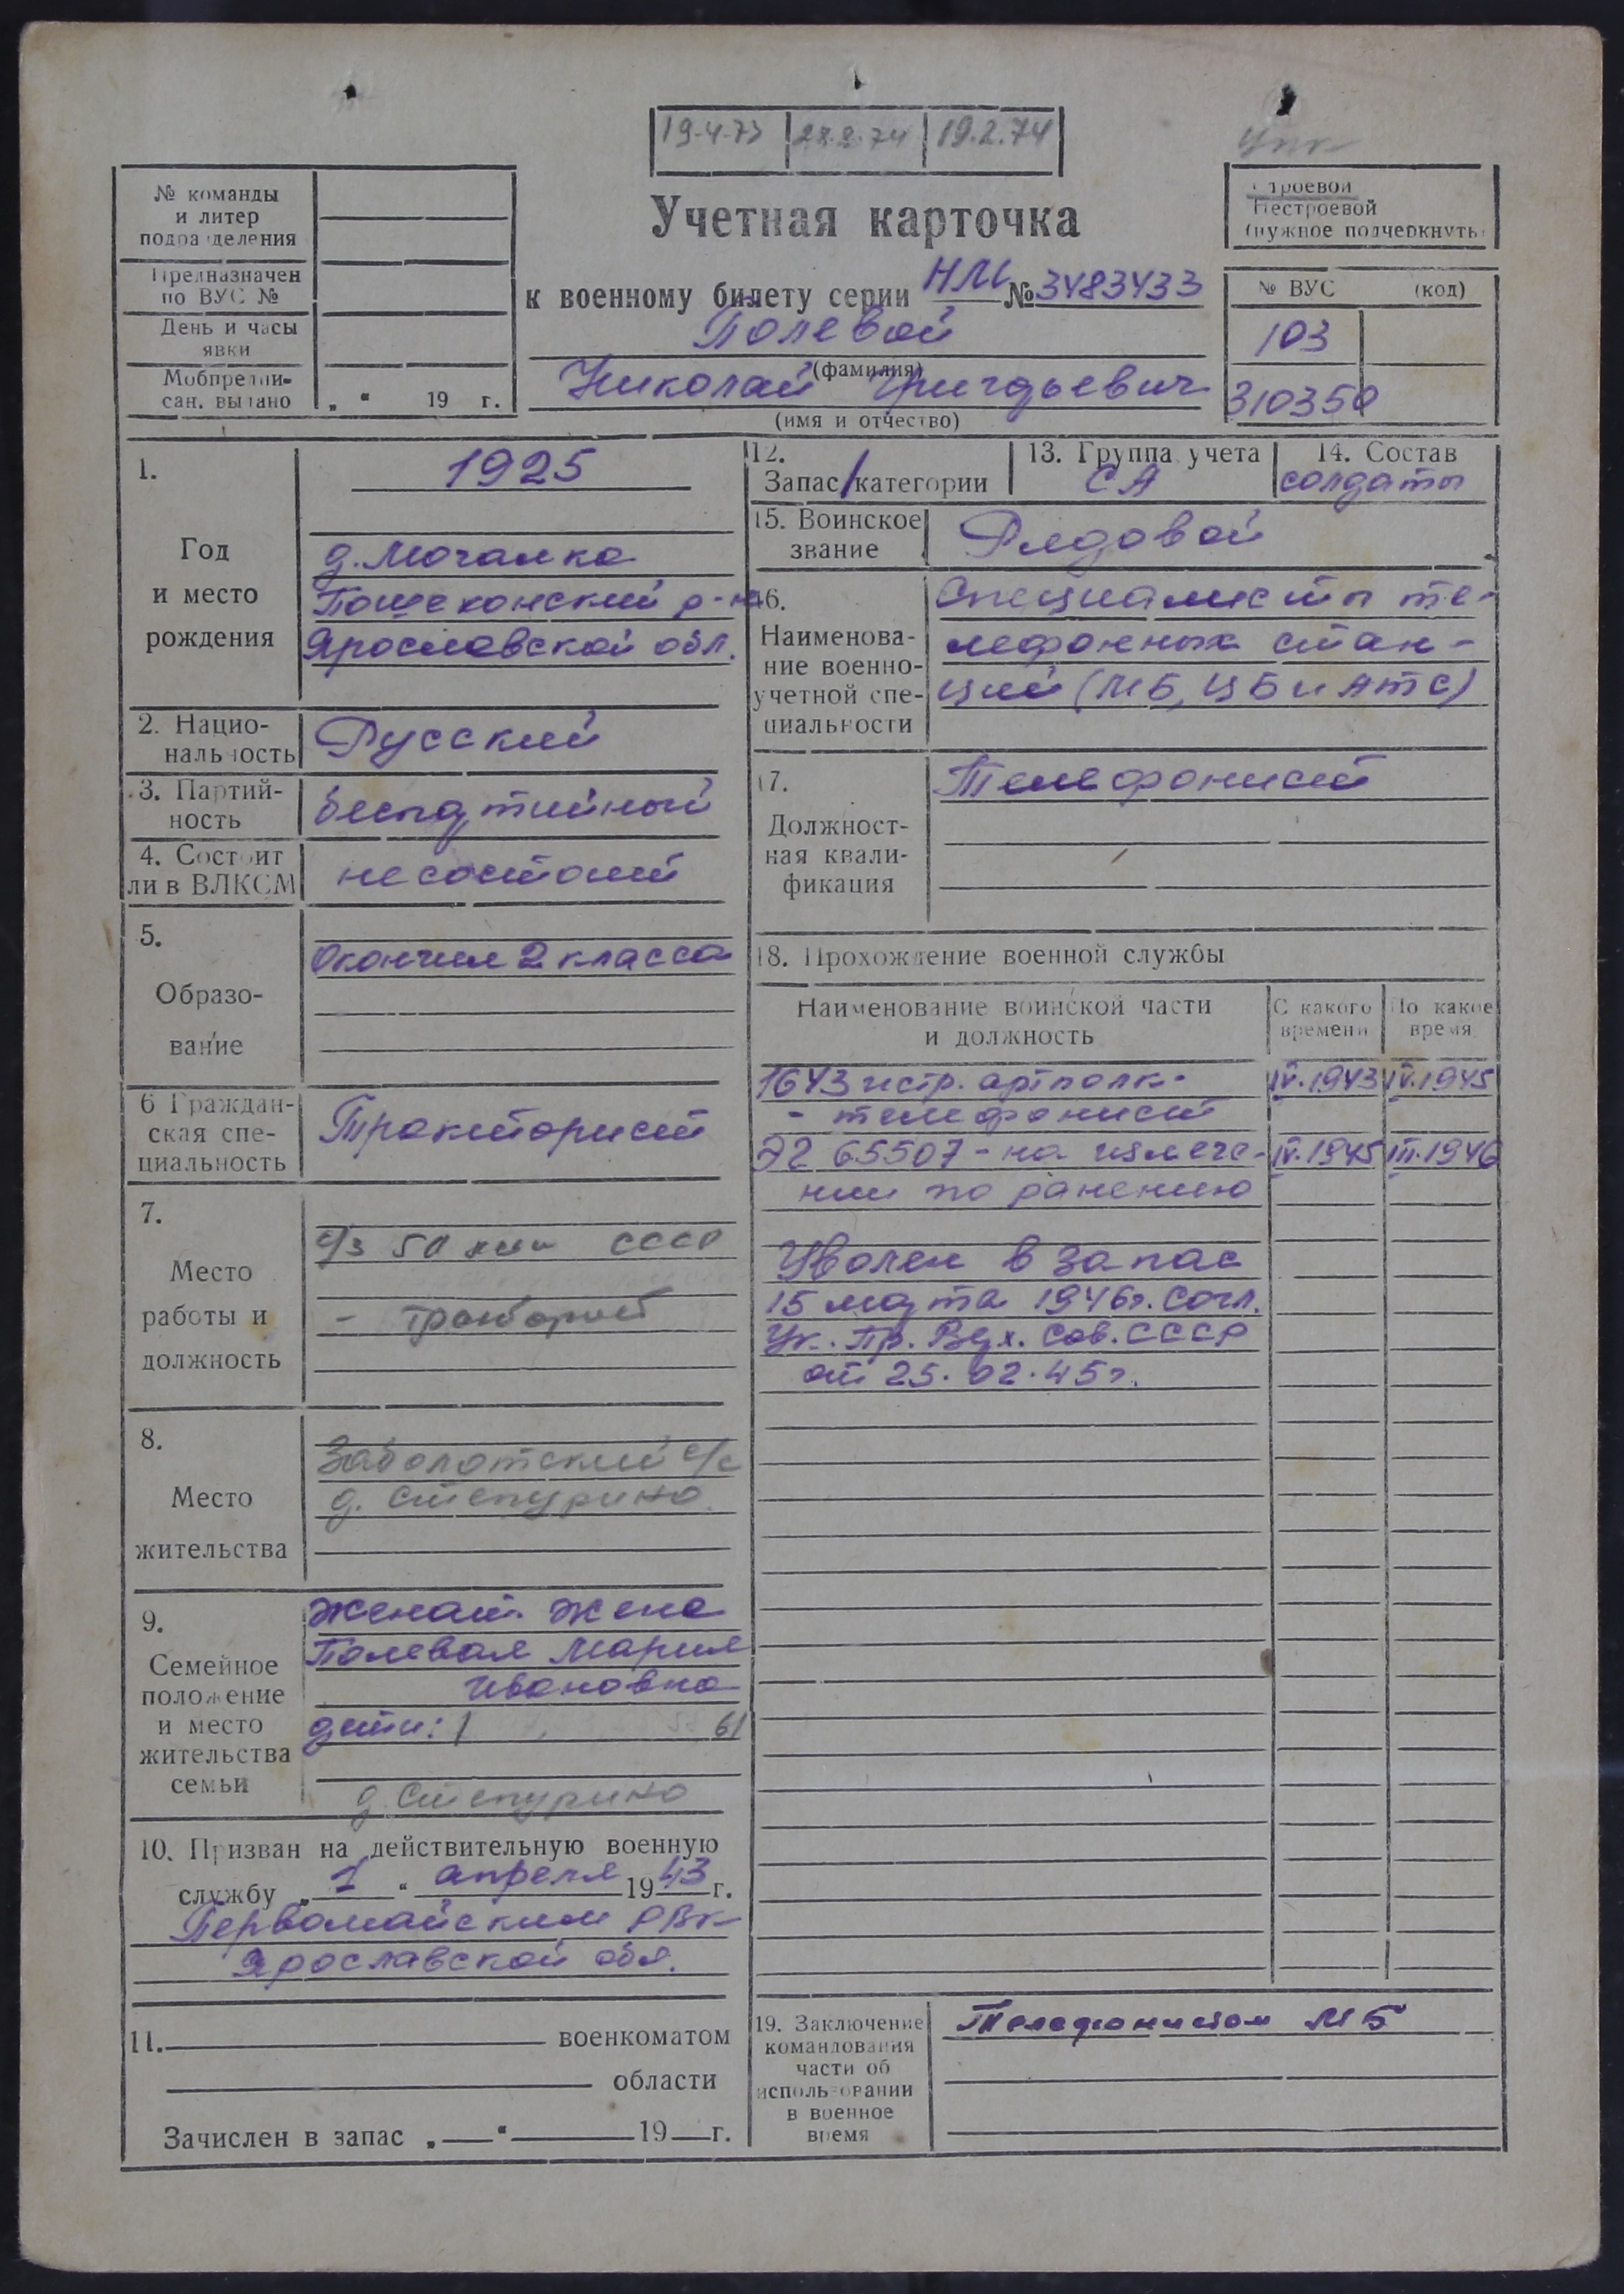 19-4-73 28.2.74 19.2.74
№ команды
и литер
подразделения
Предназначен
по ВУС №
День и часы
явки
Мобпредпи-
сан. выдано „ “ 19 г.
Учетная карточка
к военному билету серии НЛ № 3483433
Полевой
(фамилия)
Николай Григорьевич
(имя и отчество)
Строевой
Нестроевой
(нужное подчеркнуть)
№ ВУС (код)
103
310350
1.
Год
и место
рождения
1925
д. Мочалка
Пошехонский р-н
Ярославской обл.
2. Нацио-
нальность
Русский
3. Партий-
ность
беспартийный
4. Состоит
ли в ВЛКСМ
не состоит
5.
Образо-
вание
Окончил 2 класса
6 Граждан-
ская спе-
циальность
Тракторист
7.
Место
работы и
должность
с/з 50 лет СССР
- тракторист
8.
Место
жительства
Заболотский с/с
д. Степурино.
9.
Семейное
положение
и место
жительства
семьи
женат. жена
Полевая Мария
Ивановна
дети: 1 61
д. Степурино
10. Призван на действительную военную
службу „ 1 “ апреля 1943 г.
Первомайским РВК
Ярославской обл.
11. военкоматом
области
Зачислен в запас „ “ 19 г.
12.
Запас / категории
13. Группа учета
СА
14. Состав
солдаты
15. Воинское
звание
Рядовой
16.
Наименова-
ние военно-
учетной спе-
циальности
Специалисты те-
лефонных стан-
ций (МБ, ЦБ и АТС)
17.
Должност-
ная квали-
фикация
Телефонист
18. Прохождение военной службы
Наименование воинской части
и должность
С какого
времени
По какое
время
1643 истр. артполк - IV.1943 IV.1945
- телефонист
ЭГ 65507 - на излече- IV.1945 III.1946
нии по ранению
Уволен в запас
15 марта 1946г. согл.
Ук. Пр. Верх. Сов. СССР
от 25.02.45г.
19. Заключение
командования
части об
использовании
в военное
время
Телефонистом МБ